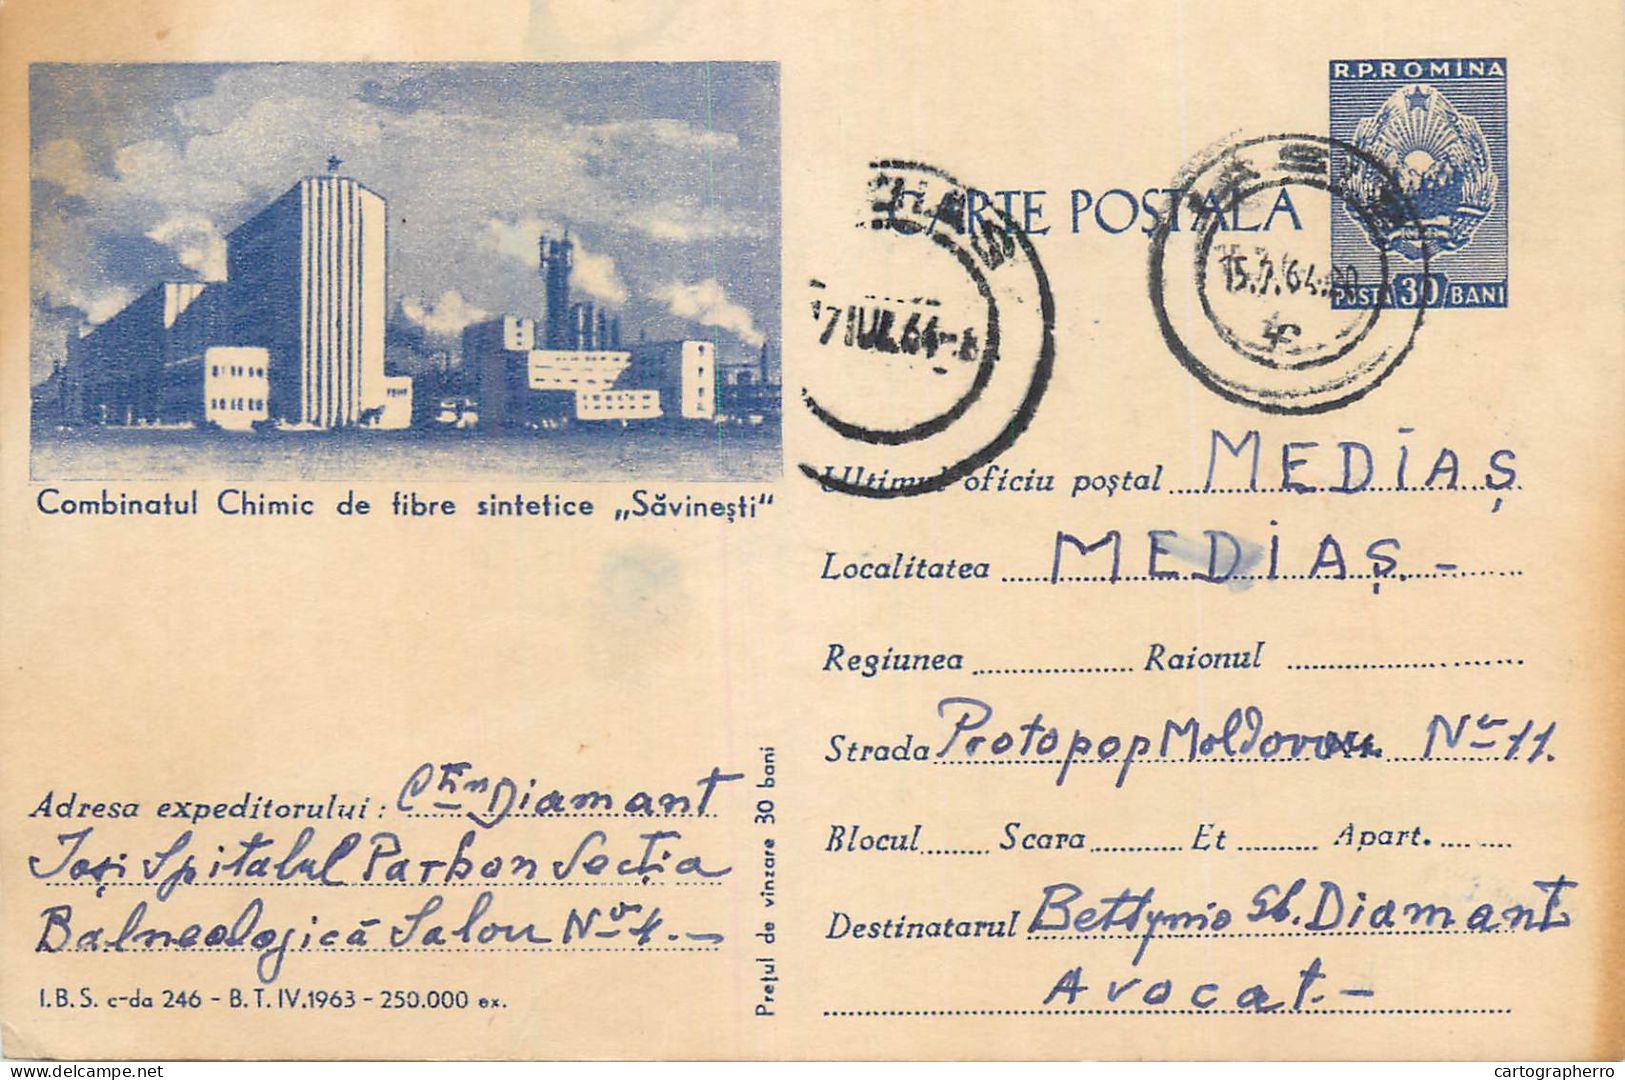 R.P.ROMINA
CARTE POSTALA
POSTA 30 BANI
15.7.64
7 IUL.64
Combinatul Chimic de fibre sintetice „Săvinești“
Ultimul oficiu poștal MEDIAȘ
Localitatea MEDIAȘ.-
Regiunea Raionul
Strada Protopop Moldovan Nr 11.
Blocul Scara Et Apart.
Destinatarul Sb. Diamant
Avocat.-
Adresa expeditorului: Diamant
Iași Spitalul Parhon Secția
Balneologică Salon Nr 4.-
I.B.S. c-da 246 - B.T. IV.1963 - 250.000 ex.
Prețul de vînzare 30 bani
delcampe.net
cartographerro